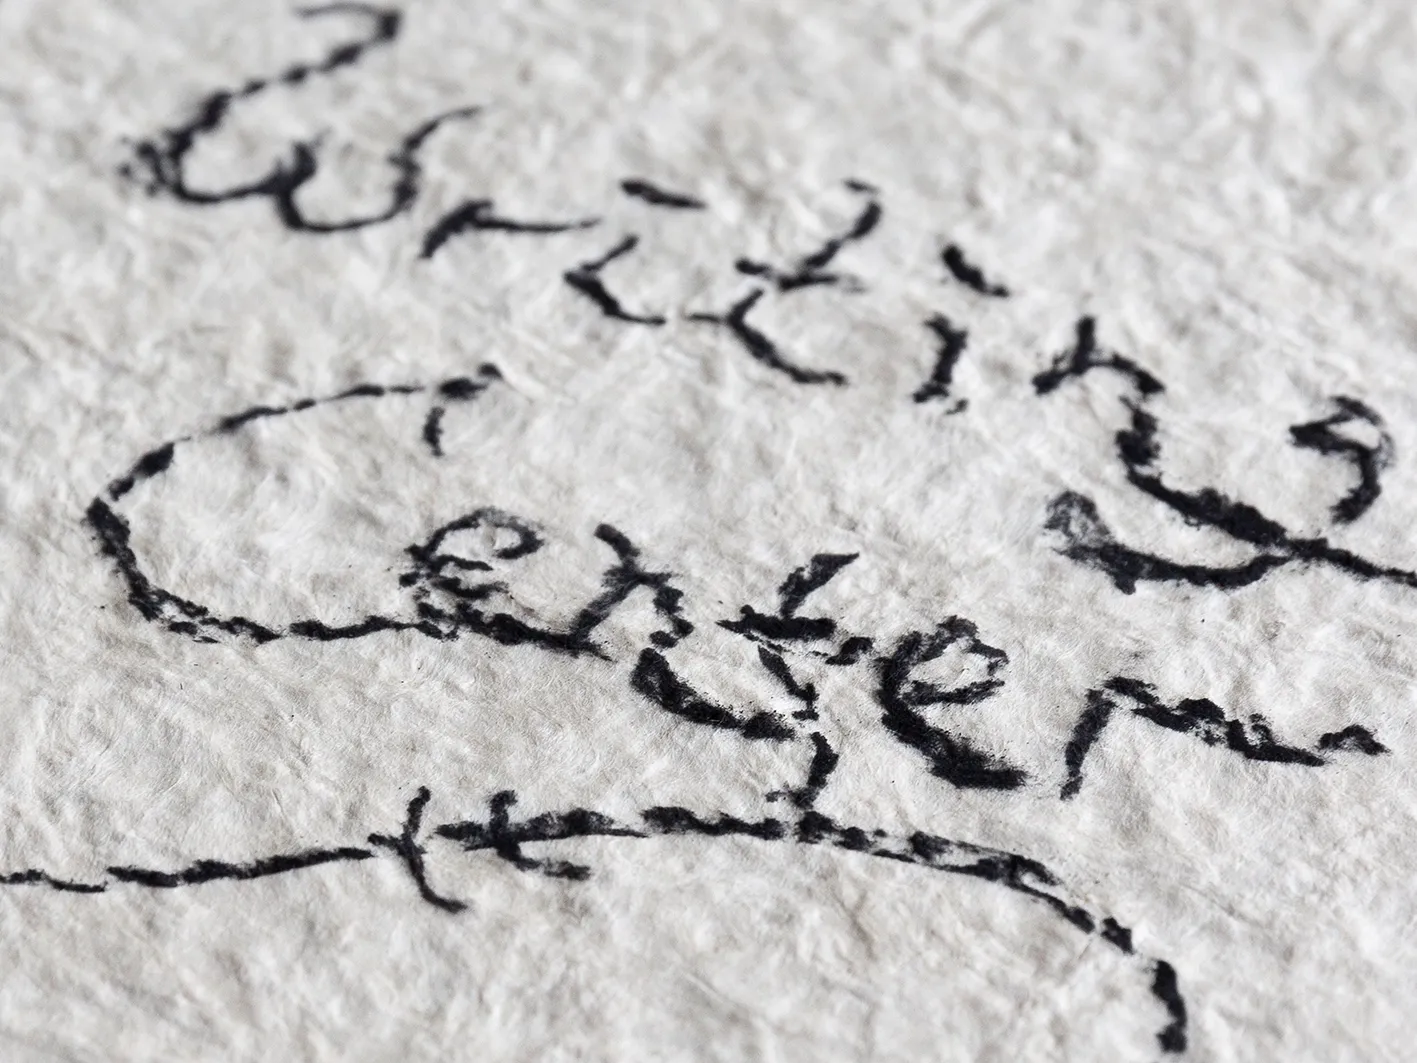 Writing
Center